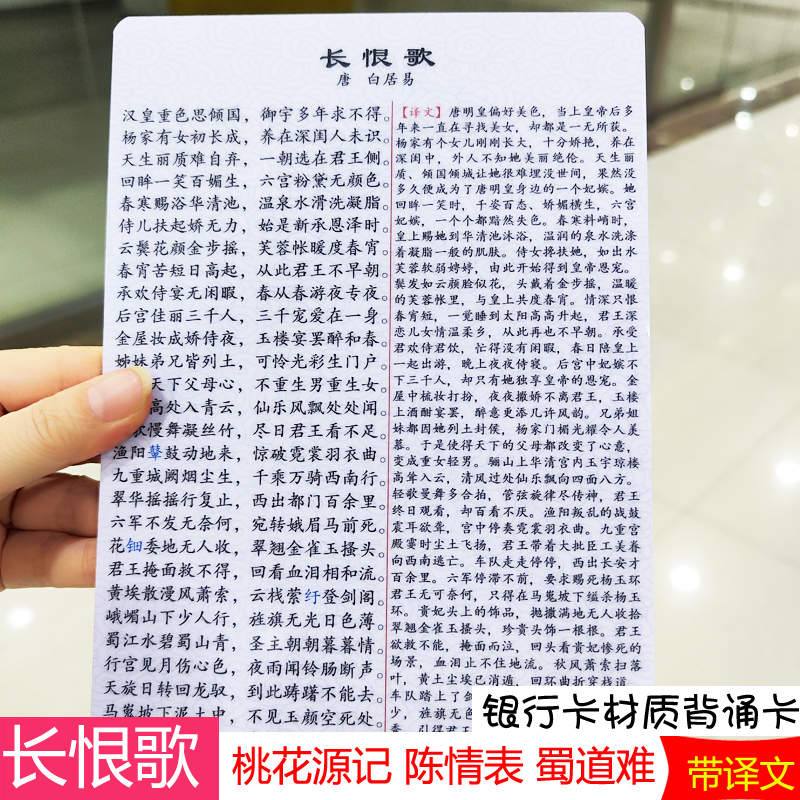 长恨歌
唐 白居易
汉皇重色思倾国，御宇多年求不得。
杨家有女初长成，养在深闺人未识。
天生丽质难自弃，一朝选在君王侧。
回眸一笑百媚生，六宫粉黛无颜色。
春寒赐浴华清池，温泉水滑洗凝脂。
侍儿扶起娇无力，始是新承恩泽时。
云鬓花颜金步摇，芙蓉帐暖度春宵。
春宵苦短日高起，从此君王不早朝。
承欢侍宴无闲暇，春从春游夜专夜。
后宫佳丽三千人，三千宠爱在一身。
金屋妆成娇侍夜，玉楼宴罢醉和春。
姊妹弟兄皆列土，可怜光彩生门户。
天下父母心，不重生男重生女。
高处入青云，仙乐风飘处处闻。
歌慢舞凝丝竹，尽日君王看不足。
渔阳鼙鼓动地来，惊破霓裳羽衣曲。
九重城阙烟尘生，千乘万骑西南行。
翠华摇摇行复止，西出都门百余里。
六军不发无奈何，宛转娥眉马前死。
花钿委地无人收，翠翘金雀玉搔头。
君王掩面救不得，回看血泪相和流。
黄埃散漫风萧索，云栈萦纡登剑阁。
峨嵋山下少人行，旌旗无光日色薄。
蜀江水碧蜀山青，圣主朝朝暮暮情。
行宫见月伤心色，夜雨闻铃肠断声。
天旋日转回龙驭，到此踌躇不能去。
马嵬坡下泥土中，不见玉颜空死处。
【译文】唐明皇偏好美色，当上皇帝后多
年来一直在寻找美女，却都是一无所获。
杨家有个女儿刚刚长大，十分娇艳，养在
深闺中，外人不知她美丽绝伦。天生丽
质、倾国倾城让她很难埋没世间，果然没
多久便成为了唐明皇身边的一个妃嫔。她
回眸一笑时，千姿百态、娇媚横生，六宫
妃嫔，一个个都黯然失色。春寒料峭时，
皇上赐她到华清池沐浴，温润的泉水洗涤
着凝脂一般的肌肤。侍女搀扶她，如出水
芙蓉软弱娉婷，由此开始得到皇帝恩宠。
鬓发如云颜脸似花，头戴着金步摇，温暖
的芙蓉帐里，与皇上共度春宵。情深只恨
春宵短，一觉睡到太阳高高升起，君王深
恋儿女情温柔乡，从此再也不早朝。承受
君欢侍君饮，忙得没有闲暇，春日陪皇上
一起出游，晚上夜夜侍寝。后宫中妃嫔不
下三千人，却只有她独享皇帝的恩宠。金
屋中梳妆打扮，夜夜撒娇不离君王，玉楼
上酒酣宴罢，醉意更添几许风韵。兄弟姐
妹都因她列土封侯，杨家门楣光耀令人羡
慕。于是使得天下的父母都改变了心意，
变成重女轻男。骊山上华清宫内玉宇琼楼
高耸入云，清风过处仙乐飘向四面八方。
轻歌曼舞多合拍，管弦旋律尽传神，君王
终日观看，却百看不厌。渔阳叛乱的战鼓
震耳欲聋，宫中停奏霓裳羽衣曲。九重宫
殿霎时尘土飞扬，君王带着大批臣工美眷
向西南逃亡。车队走走停停，西出长安才
百余里。六军停滞不前，要求赐死杨玉环
君王无可奈何，只得在马嵬坡下缢杀杨玉
环。贵妃头上的饰品，抛撒满地无人收拾
翠翘金雀玉搔头，珍贵头饰一根根。君王
欲救不能，掩面而泣，回头看贵妃惨死的
场景，血泪止不住地流。秋风萧索扫落
叶，黄土尘埃已消遁，回环曲折穿栈道，
车队踏上了剑
少，旌旗无色
香，引得君王
银行卡材质背诵卡
长恨歌
桃花源记 陈情表 蜀道难
带译文